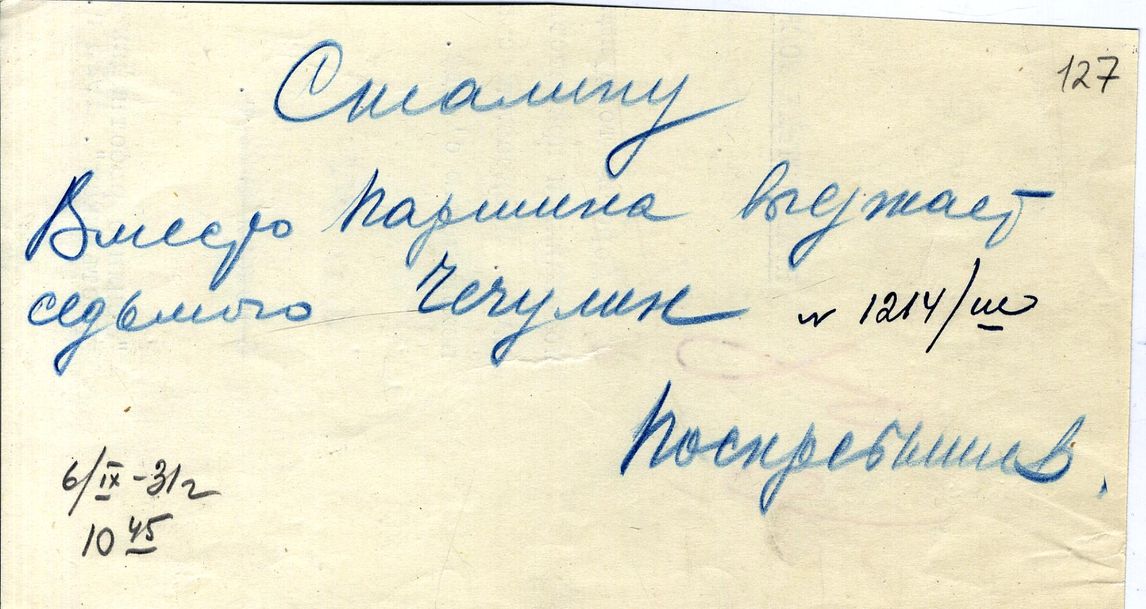 127
Сталину
Вместо Паршина выезжает
седьмого Чечулин № 1214/ш
Поскребышев.
6/IX-31г
10 45